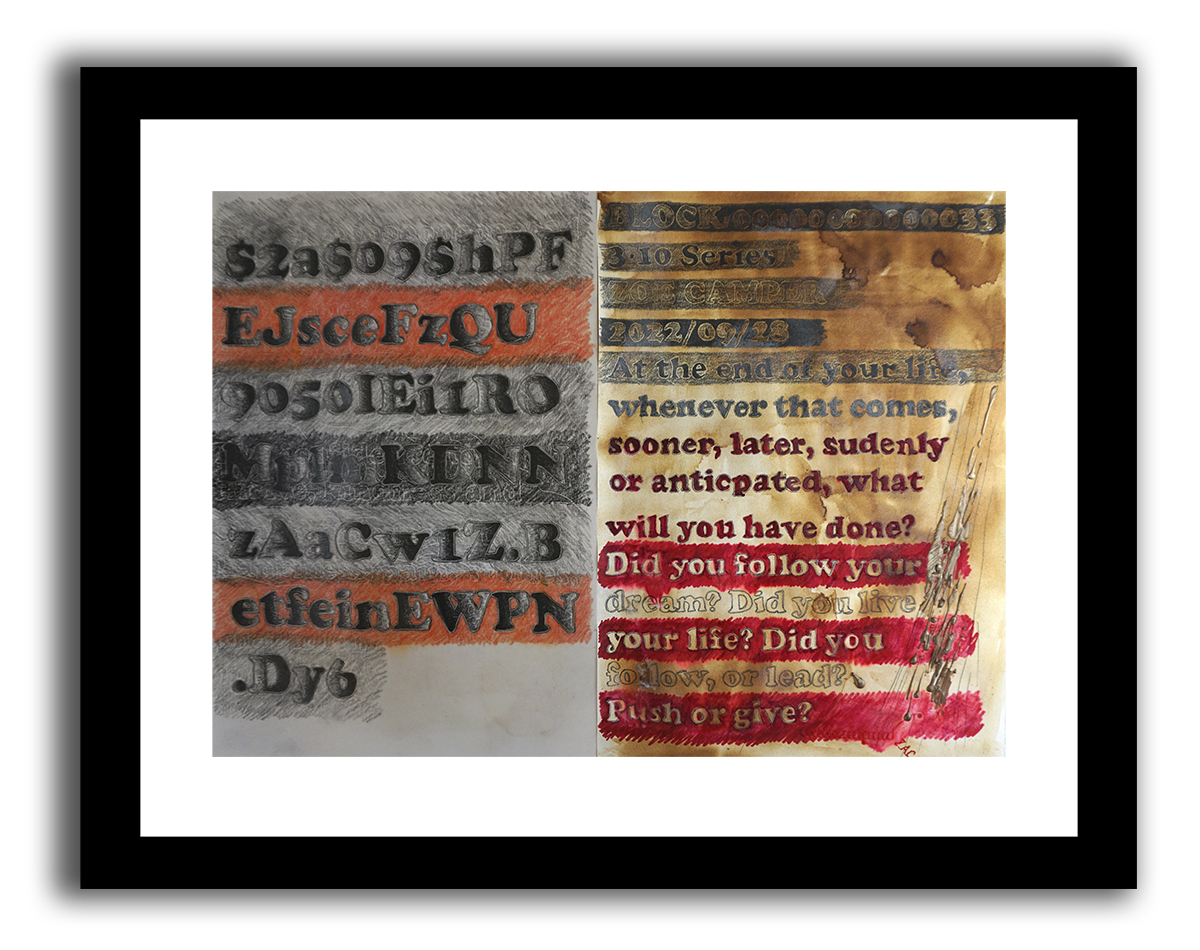 $2a$09$hPF
EJsceFzQU
9050IEi1RO
zAaCw1Z.B
etfeinEWPN
.Dy6
BLOCK.000000000000033
3·10 Series
ZOE CAMPER
2022/09/28
At the end of your life,
whenever that comes,
sooner, later, sudenly
or anticpated, what
will you have done?
Did you follow your
dream? Did you live
your life? Did you
follow, or lead?
Push or give?
ZAC